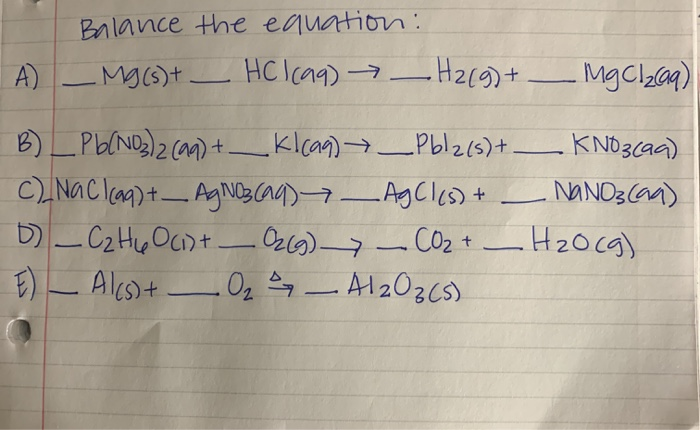 Balance the equation:
A) _ Mg(s) + _ HCl(aq) → _ H2(g) + _ MgCl2(aq)
B) _ Pb(NO3)2(aq) + _ KI(aq) → _ PbI2(s) + _ KNO3(aq)
C) _ NaCl(aq) + _ AgNO3(aq) → _ AgCl(s) + _ NaNO3(aq)
D) _ C2H6O(l) + _ O2(g) → _ CO2 + _ H2O(g)
E) _ Al(s) + _ O2 Δ→ _ Al2O3(s)